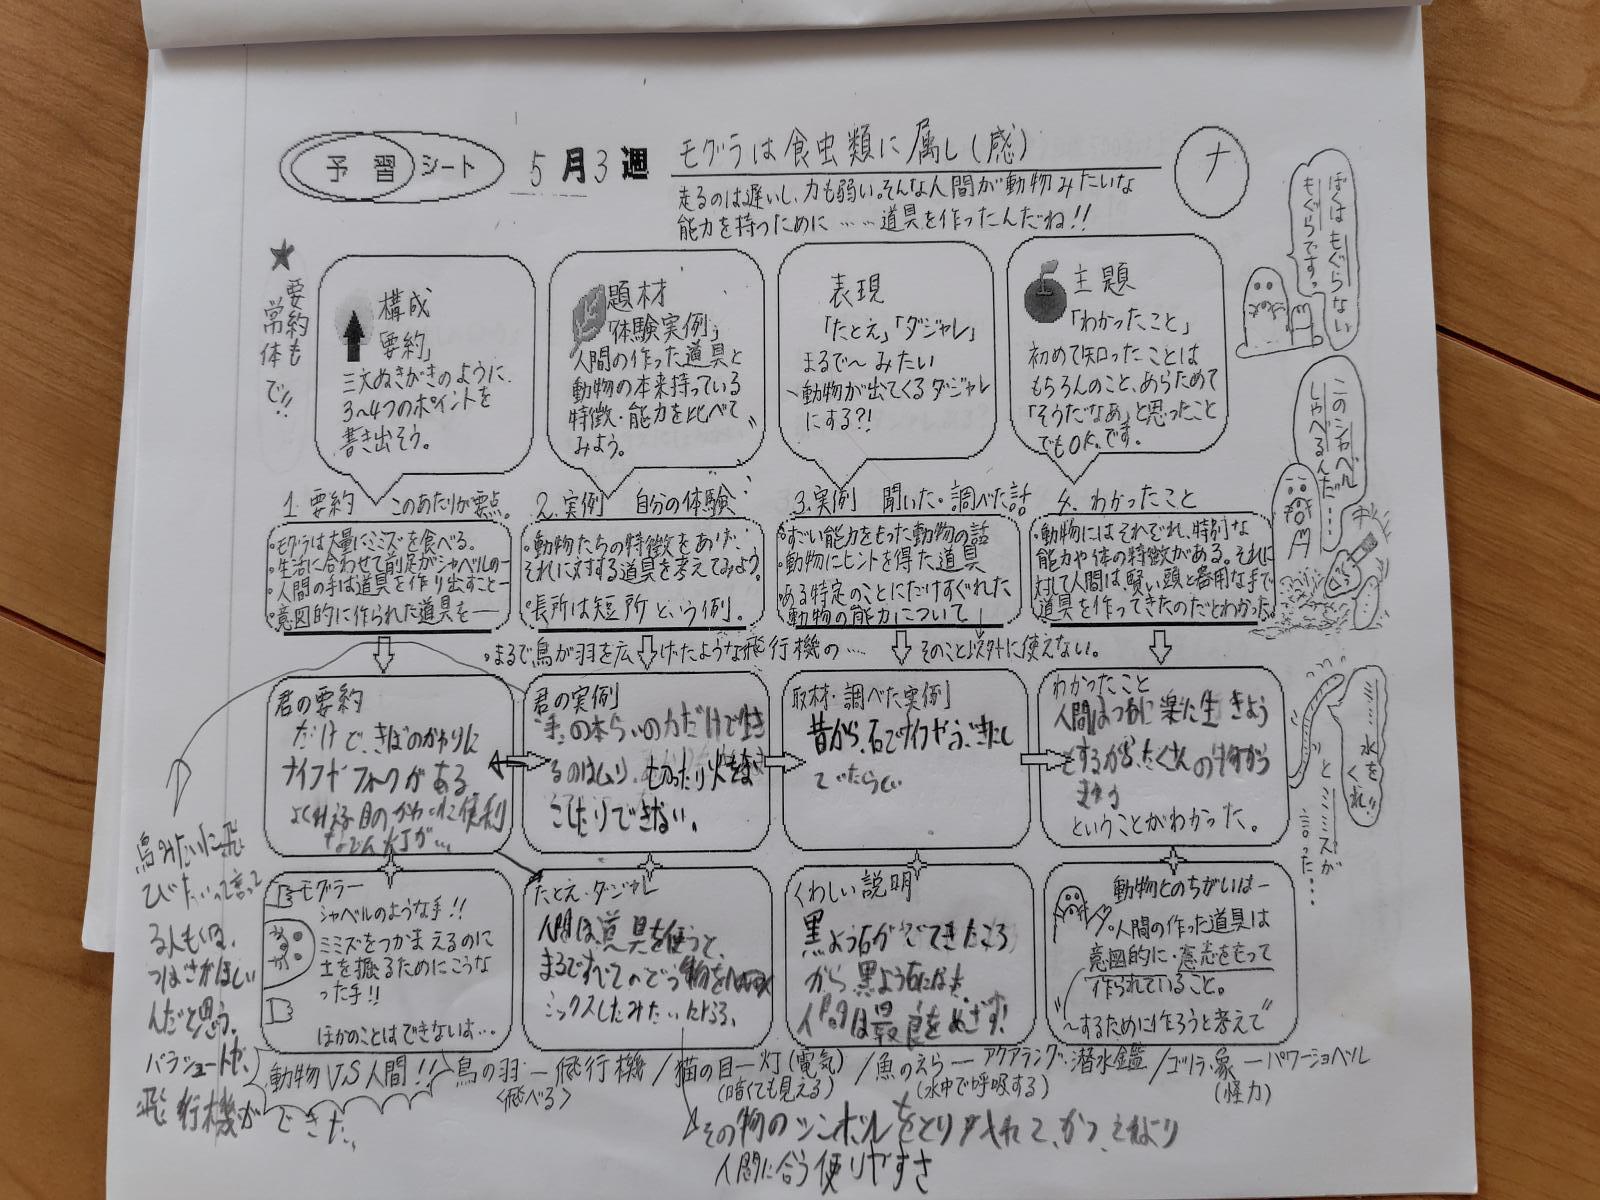 予習シート
5月3週
モグラは食虫類に属し(感)
ナ
走るのは遅いし、力も弱い。そんな人間が動物みたいな
能力を持つために……道具を作ったんだね!!
ぼくはもぐらない
もぐらです。
★要約も
常体で!!
構成
「要約」
三文ぬきがきのように、
3〜4つのポイントを
書き出そう。
題材
「体験実例」
人間の作った道具と
動物の本来持っている
特徴・能力を比べて
みよう。
表現
「たとえ」「ダジャレ」
まるで〜みたい
動物が出てくるダジャレ
にする?!
主題
「わかったこと」
初めて知ったことは
もちろんのこと、あらためて
「そうだなあ」と思ったこと
でもOK。です。
このシャベル
しゃべるんだ……
1.要約 このあたりが要点。
・モグラは大量にミミズを食べる。
・生活に合わせて前足がシャベルの―
・人間の手は道具を作り出すこと―
・意図的に作られた道具を――
2.実例 自分の体験
・動物たちの特徴をあげ、
それに対する道具を考えてみよう。
・長所は短所という例。
3.実例 聞いた・調べた話
すごい能力をもった動物の話
・動物にヒントを得た道具
ある特定のことにだけすぐれた
動物の能力について
4.わかったこと
・動物にはそれぞれ、特別な
能力や体の特徴がある。それに
対して人間は、賢い頭と器用な手で
道具を作ってきたのだとわかった。
・まるで鳥が羽を広げたような飛行機の…
そのこと以外に使えない。
君の要約
だけど、きばのかわりに
ナイフやフォークがある
君の実例
切ったり火を
こしたりできない。
取材・調べた実例
昔から、石でナイフや
わかったこと
人間はつねに楽に生きよう
とするから、たくさんの
ということがわかった。
水をくれ!!
とミミズが
言った…
鳥みたいに飛
びたいって言って
る人もいる、
つばさがほしい
んだと思う。
パラシュートや、
飛行機が
できた。
モグラー
シャベルのような手!!
ミミズをつかまえるのに
土を掘るためにこうな
った手!!
ほかのことはできないは…
たとえ・ダジャレ
人間は、道具を使うと、
まるですべてのどう物を
ミックスしたみたい
くわしい説明
黒よう石ができたころ
から
人間は最良をめざす!
動物とのちがいは―
人間の作った道具は
意図的に・意志をもって
作られていること。
〜するために作ろうと考えて
動物VS人間!!
鳥の羽―飛行機/猫の目―灯(電気)/魚のえら―アクアラング・潜水鑑/ゴリラ・象―パワーショベル
<飛べる>
(暗くても見える)
(水中で呼吸する)
(怪力)
その物のシンボルをとり入れて、かつ、
人間に合う使いやすさ